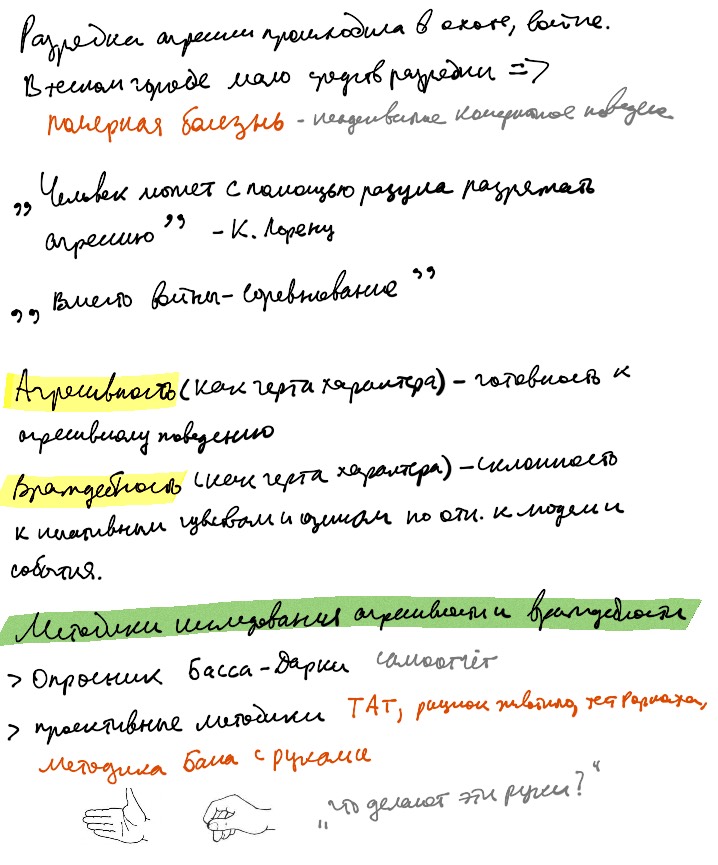 Разрядка агрессии происходила в охоте, войне.
В тесном городе мало средств разрядки =>
полярная болезнь - неадекватное конкретное поведен
„Человек может с помощью разума разряжать
агрессию” - К. Лоренц
„Вместо войны - соревнование”
Агрессивность (как черта характера) - готовность к
агрессивному поведению
Враждебность (как черта характера) - склонность
к негативным чувствам и оценкам по отн. к людям и
события.
Методики исследования агрессивности и враждебности
> Опросник Басса-Дарки самоотчёт
> проективные методики ТАТ, рисунок животного, тест Роршаха,
методика Вагнера с руками
„что делают эти руки?“